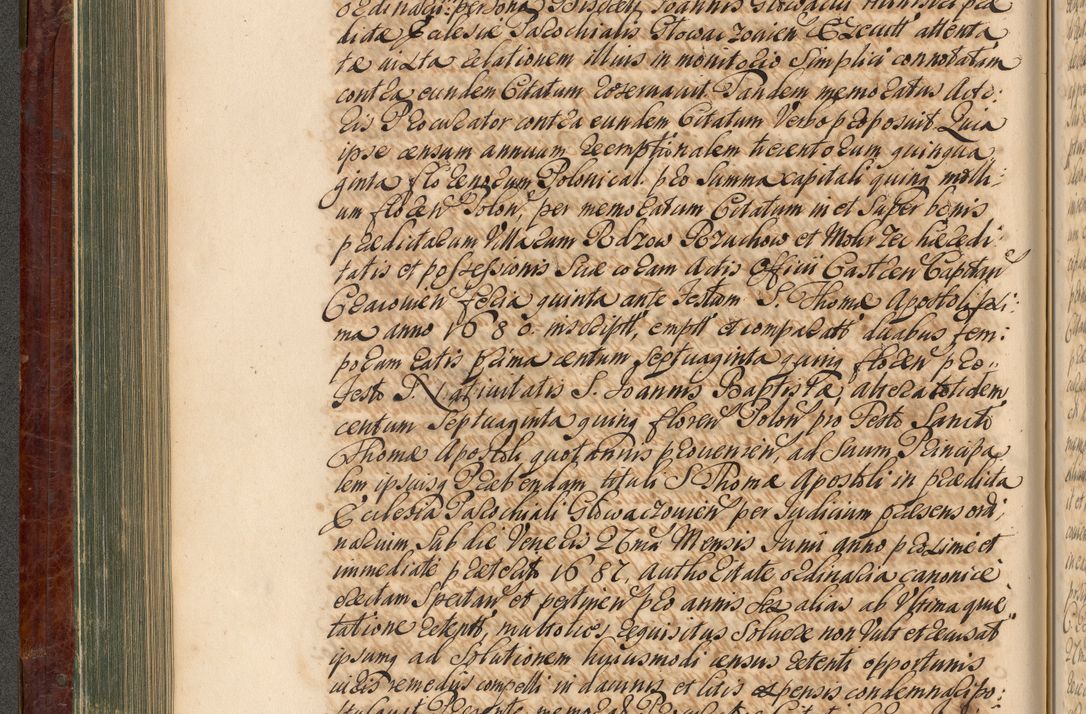 ordinarij: persona Discreti Joannis Glowacki Ministri præ
dictæ Ecclesiæ Parochialis Glowaczovien Execut attenta
te iuxta relationem illius in monitorio Simplici connotatam
contra eundem Citatum reservavit. Tandem memoratus Acto:
ris Procurator contra eundem Citatum Verbo proposuit. Quia
ipse censum annuum reemptionalem trecentorum quinqua
ginta florenorum Polonical. pro Summa capitali quinq milli
um floren Polon, per memoratum Citatum in et Super bonis
prædictarum Villarum Rdzow Rzuchow et Mokrzec hæredi
tatis et possessionis Suæ coram Actis Officii Castren Capitan
Czacovien feria quinta ante Festum S. Thomæ Apostoli proxi:
ma anno 1680. inscriptt, emptt et comparatt duabus tem:
porum ratis prima centum Septuaginta quinq floren pro
Festo S. Nativitatis S. Joannis Baptistæ, altera totidem
centum Septuaginta quinq floren Polon pro Festo Sancti
Thomæ Apostoli quotannis provenien, ad Suum Principa
lem ipsiusq Præbendam tituli S Thomæ Apostoli in prædicta
Ecclesia Parochiali Glowaczovien per Judicium præsens ordi
narium Sub die Veneris 27ma Mensis Junii anno proxime et
immediate præterito 1687, Authoritate ordinaria canonice
erectam Spectan et pertinen pro annis Sex alias ab Ultima quie
tatione retentt, multoties requisitus Solvere non Vult et recusat
ipsumq ad Solutionem huiusmodi census retenti opportunis
iuris remediis compelli in damnis et litis expensis condemnari po: